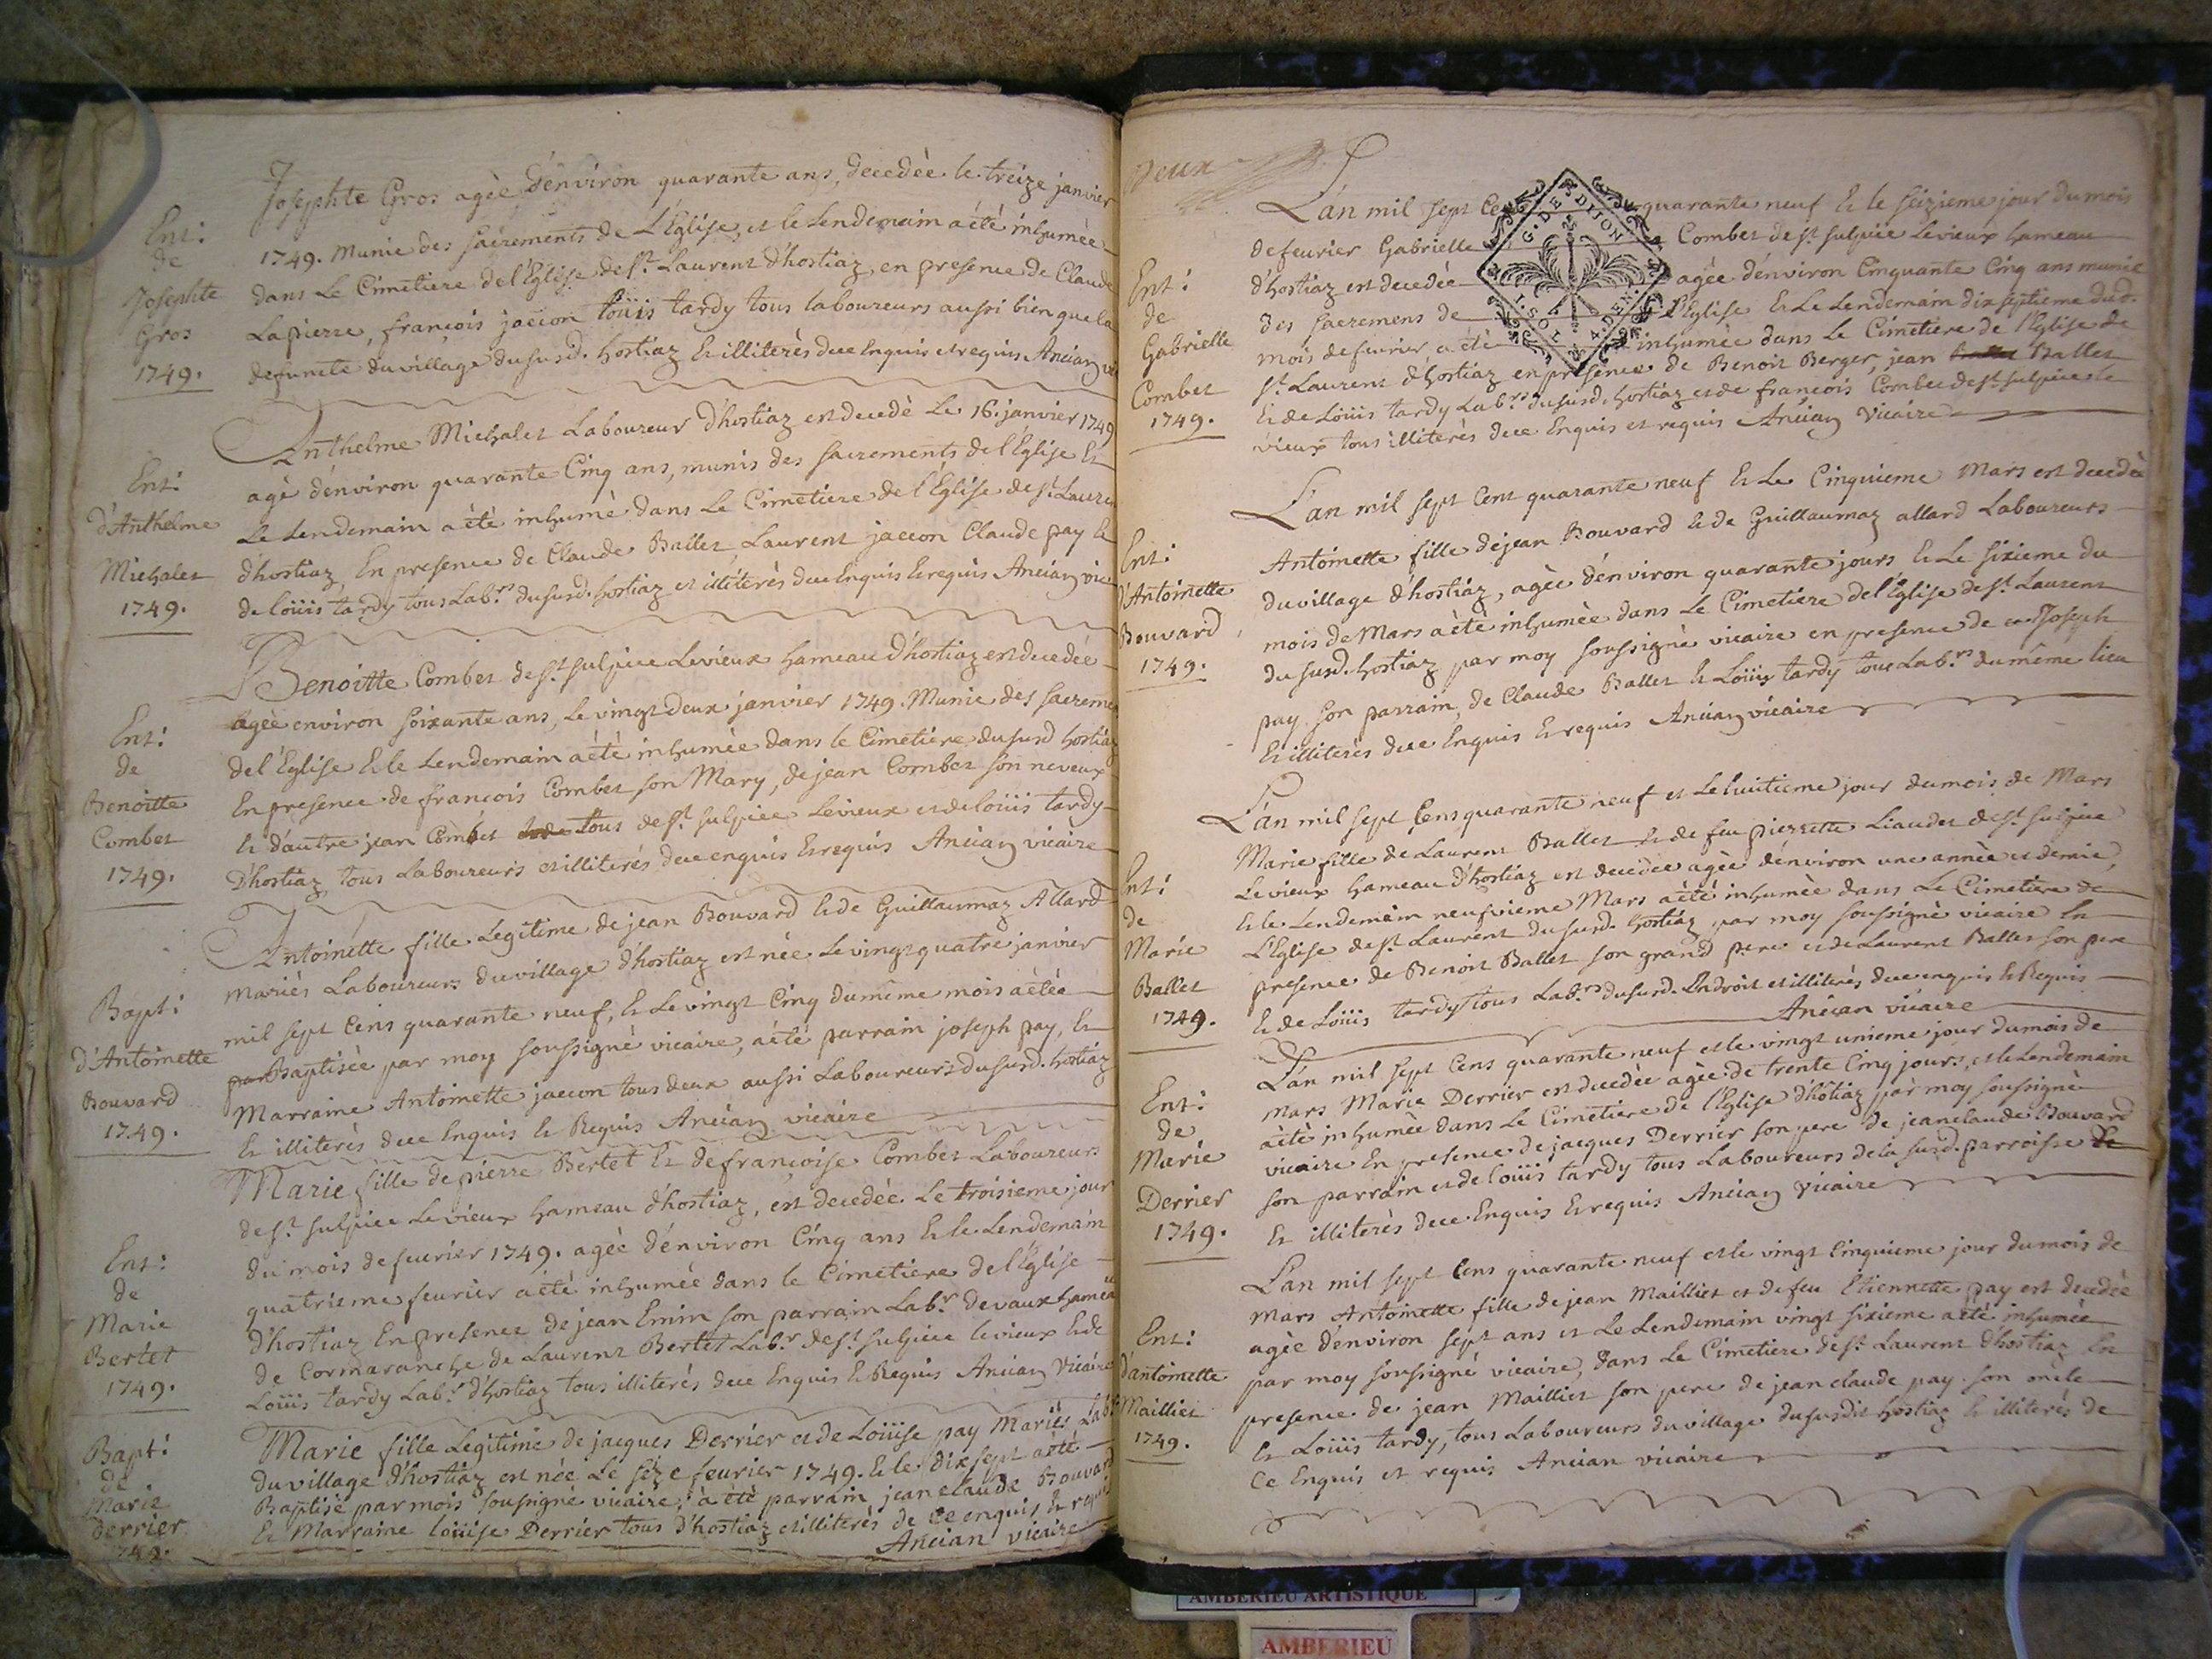 Ent:
de
Josephte
Gros
1749.
Josephte Gros agèe d'énviron quarante ans, decedèe le treize janvier
1749. Munie des sacrements de L'Eglise, et le Lendemain a ètè inhumèe
dans Le Cimetiere de l'Eglise de st. Laurent d'hostiaz, en presence de Claude
Lapierre, francois jaccon loüis tardy tous laboureurs aussi bien que la
defuncte du village du susd. hostiaz Et illiterès de ce Enquis et requis Ancian
Ent:
d'Anthelme
Michalet
1749.
Anthelme Michalet Laboureur d'hostiaz est decedè Le 16. janvier 1749
agè d'énviron quarante Cinq ans, munis des sacrements de l'Eglise Et
Le Lendemain a ètè inhumè dans Le Cimetiere de l'Eglise de st. Lauren
d'hostiaz, En presence de Claude Ballet, Laurent jaccon Claude pay Et
de loüis tardy tous Lab.rs du susd. hostiaz et illiterès de ce Enquis Et requis Ancian vic
Ent:
de
Benoitte
Combet
1749.
Benoitte Combet de st. sulpice Levieux hameau d'hostiaz est decedèe
agèe environ soixante ans, Le vingt deux janvier 1749. Munie des sacreme
de l'Eglise Et le Lendemain a ètè inhumèe dans le Cimetiere du susd hostiaz
En presence de francois Combet son Mary, de jean Combet son neveux
Et d'autre jean Combet tous de st. sulpice Levieux et de loüis tardy
D'hostiaz tous Laboureurs et illiterés de ce enquis Et requis Ancian vicaire
Bapt:
d'Antoinette
Bouvard
1749.
Antoinette fille Legitime de jean Bouvard Et de Guillaumaz Allard
mariés Laboureurs du village d'hostiaz est née Le vingt quatre janvier
mil sept Cens quarante neuf, Et Le vingt Cinq du même mois a ètèe
par Baptisèe par moy soussigné vicaire, a ètè parrain joseph pay, Et
Marraine Antoinette jaccon tous deux aussi Laboureurs du susd. hostiaz
Et illiterès de ce Enquis Et Requis Ancian vicaire
Ent:
de
Marie
Bertet
1749.
Marie fille de pierre Bertet Et de françoise Combet Laboureurs
de st. sulpice Levieux hameau d'hostiaz, est decedèe Le troisieme jour
du mois de feurier 1749. agèe d'énviron Cinq ans Et le Lendemain
quatrieme feurier a ètè inhumèe dans le Cimetiere de l'Eglise
d'hostiaz En presence de jean Emin son parrain Lab.r de vaux hamea
de Cormaranche de Laurent Bertet Lab.r de st. sulpice Levieux Et de
Loüis tardy Lab.r d'hostiaz tous illiterés de ce Enquis Et Requis Ancian Vicaire
Bapt:
de
Marie
Derrier
1749.
Marie fille Legitime de jacques Derrier et de Loüise pay Mariés Lab.
du village d'hostiaz est née Le séze feurier 1749. Et le dix sept a ètè
Baptisé par mois soussigné vicaire, a ètè parrain jean claude Bouvard
Et Marraine loüise Derrier tous d'hostiaz et illiterés de ce enquis Et requis
Ancian vicaire
Deux
G. DE DIJON
1. SOL. 4. DEN.
Ent:
de
Gabrielle
Combet
1749.
L'an mil sept Cens quarante neuf Et le seizieme jour du mois
de feurier Gabrielle Combet de st. sulpice Levieux hameau
d'hostiaz est decedèe agèe d'énviron Cinquante Cinq ans munie
des sacremens de L'Eglise Et Le Lendemain dix septieme dud.
mois de feurier, a ètè inhumèe dans Le Cimetiere de l'Eglise de
st. Laurent d'hostiaz en presence de Benoit Berger, jean Ballet
Et de Loüis tardy Lab.rs du susd. hostiaz et de francois Combet de st. sulpice le
vieux tous illiterès de ce Enquis et requis Ancian Vicaire
Ent:
d'Antoinette
Bouvard
1749.
L'an mil sept Cent quarante neuf Et Le Cinquieme Mars est decedèe
Antoinette fille de jean Bouvard Et de Guillaumaz allard Laboureurs
du village d'hostiaz, agèe d'énviron quarante jours Et Le sixieme du
mois de Mars a ètè inhumèe dans Le Cimetiere de l'Eglise de st. Laurent
du susd. hostiaz par moy soussignè vicaire en presence de Joseph
pay son parrain, de Claude Ballet Et Loüis tardy tous Lab.rs du même lieu
Et illiterès de ce Enquis Et requis Ancian vicaire
Ent:
de
Marie
Ballet
1749.
L'an mil sept Cens quarante neuf et Le huitieme jour du mois de Mars
Marie fille de Laurent Ballet Et de feu pierrette Liaudet de st. sulpice
Levieux hameau d'hostiaz est decedèe agèe d'énviron une annèe et demie,
Et le Lendemain neufvieme Mars a ètè inhumèe dans Le Cimetiere de
L'Eglise de st. Laurent du susd. hostiaz par moy soussignè vicaire En
presence de Benoit Ballet son grand pere et de Laurent Ballet son pere
Et de Loüis tardy tous Lab.rs du susd. Endroit et illiterès de ce enquis Et Requis
Ancian vicaire
Ent:
de
Marie
Derrier
1749.
L'an mil sept Cens quarante neuf et le vingt unieme jour du mois de
Mars Marie Derrier est decedèe agèe de trente Cinq jours, et le Lendemain
a ètè inhumèe dans Le Cimetiere de l'Eglise d'hôtiaz par moy soussignè
vicaire En presence de jacques Derrier son pere de jean claude Bouvard
son parrain et de loüis tardy tous Laboureurs de la susd. parroisse de
Et illiterès de ce Enquis Et requis Ancian Vicaire
Ent:
d'antoinette
Mailliet
1749.
L'an mil sept Cens quarante neuf et le vingt Cinquieme jour du mois de
Mars Antoinette fille de jean Mailliet et de feu Etiennette pay est decedèe
agèe d'énviron sept ans et Le Lendemain vingt sixieme a ètè inhumèe
par moy soussigné vicaire, dans Le Cimetiere de st. Laurent d'hostiaz En
presence de jean Mailliet son pere de jean claude pay son oncle
Et Loüis tardy, tous Laboureurs du village du susdit hostiaz Et illiterés de
Ce Enquis et requis Ancian vicaire
AMBERIEU ARTISTIQUE
AMBERIEU